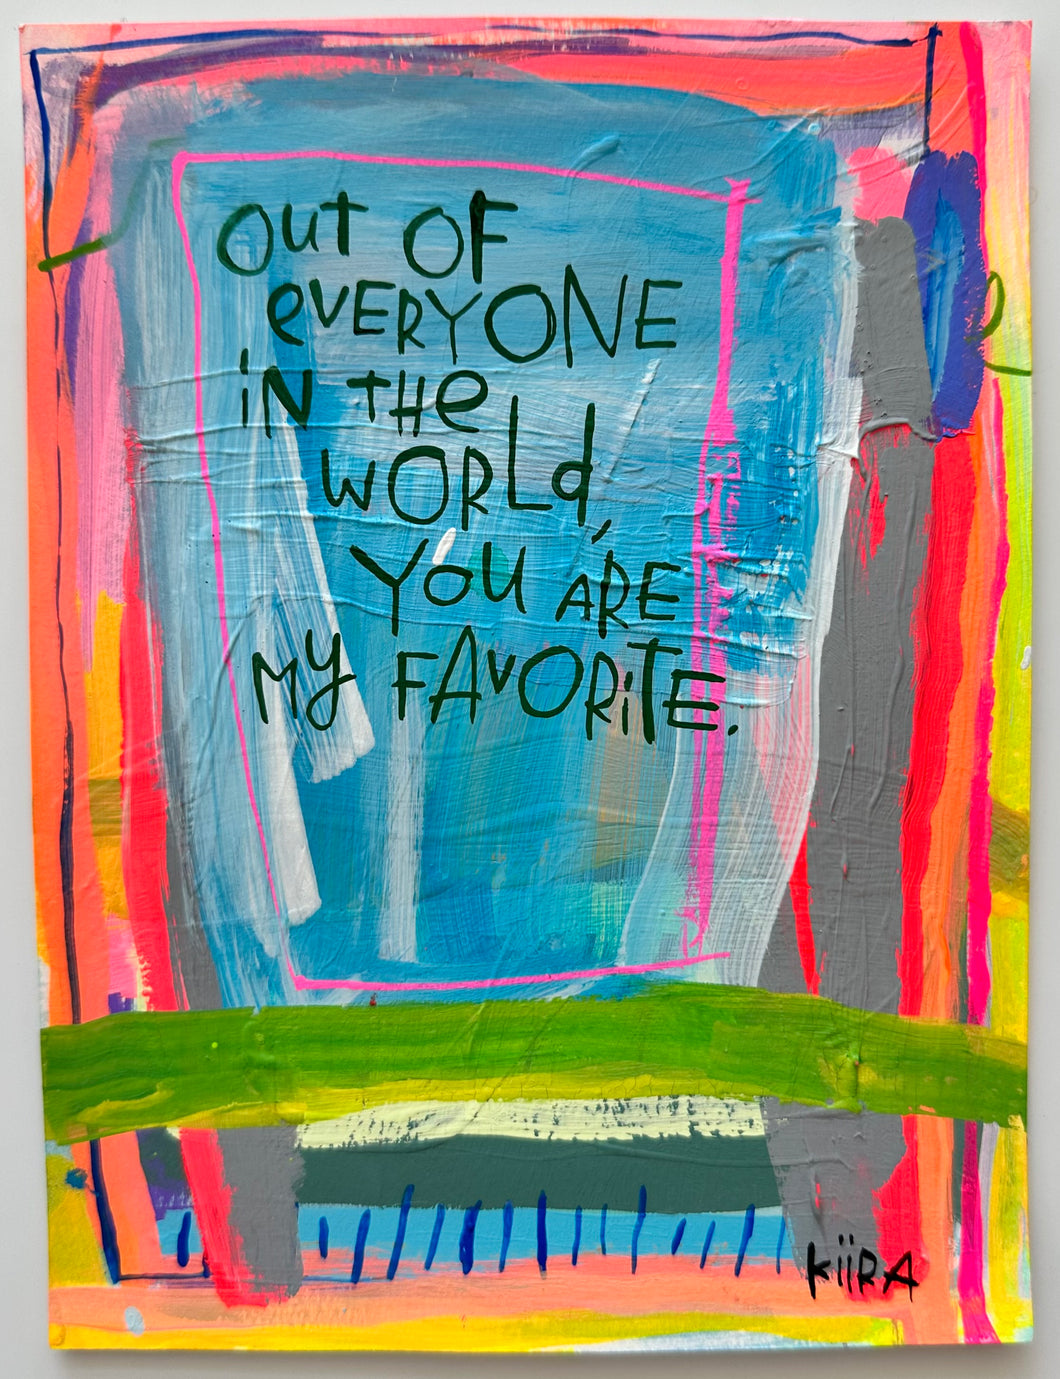 OUT OF
eVERYONE
iN THe
WORLd,
YOU ARE
MY FAVORiTE.
kiiRA